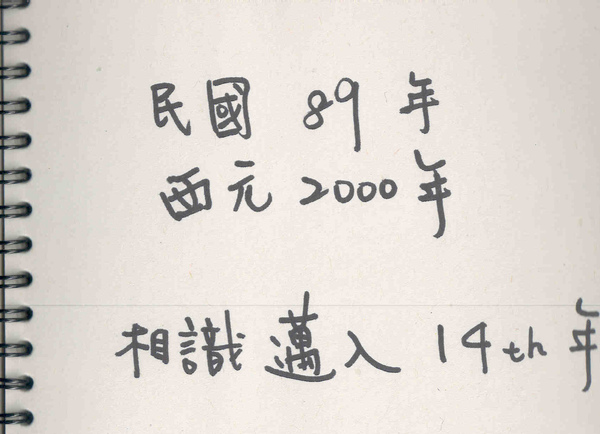 民國 89 年
西元 2000 年
相識邁入 14th 年